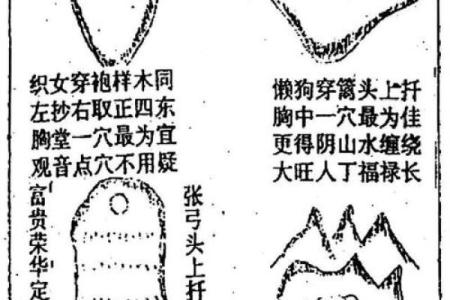 织女穿袍样木同
左抄右取正四东
胸堂一穴最为宜
观音点穴不用疑
懒狗穿篱头上扦
胸中一穴最为佳
更得阴山水缠绕
大旺人丁福禄长
富贵荣华定
张弓头上扦